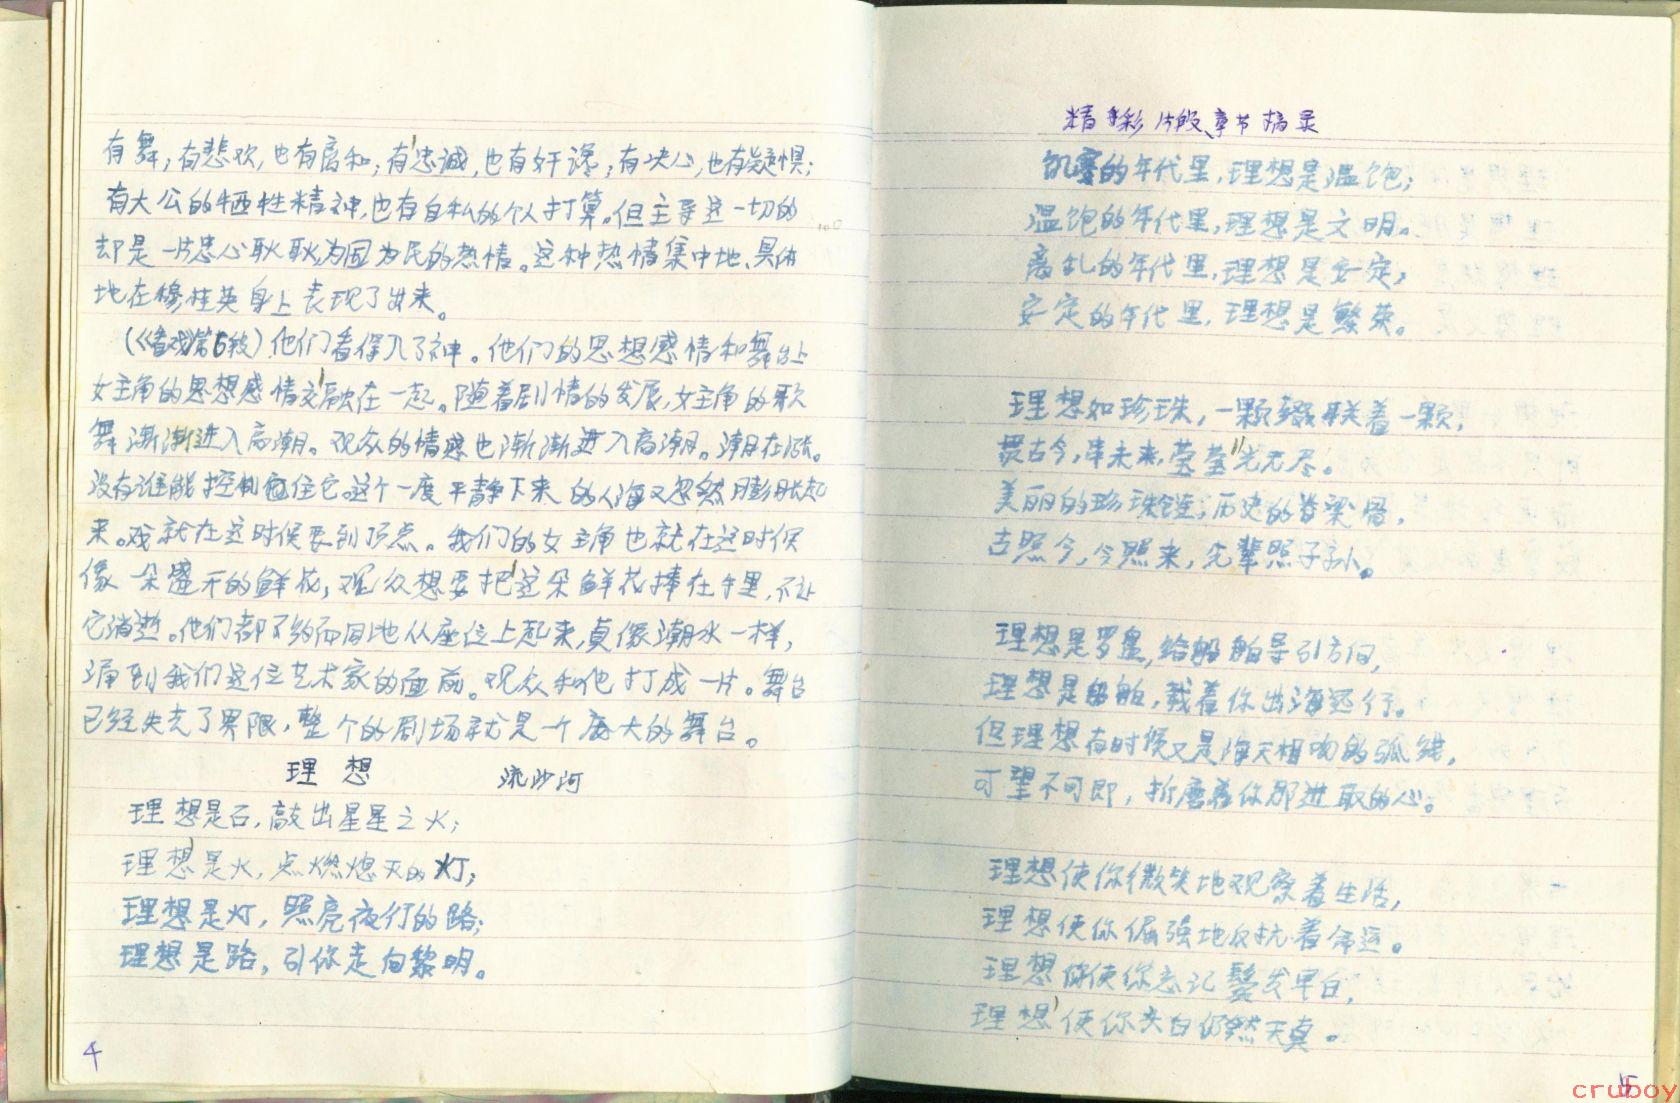 有舞；有悲欢，也有离和；有忠诚，也有奸谗；有决心，也有疑惧；
有大公的牺牲精神，也有自私的个人打算。但主导这一切的
却是一片忠心耿耿，为国为民的热情。这种热情集中地、具体
地在穆桂英身上表现了出来。
（《看戏》第6段）他们看得入了神。他们的思想感情和舞台上
女主角的思想感情交融在一起。随着剧情的发展，女主角的歌
舞渐渐进入高潮。观众的情感也渐渐进入高潮。潮在涨。
没有谁能控制住它。这个一度平静下来的人海又忽然膨胀起
来。戏就在这时候要到顶点。我们的女主角也就在这时候
像一朵盛开的鲜花，观众想要把这朵鲜花捧在手里，不让
它消逝。他们都不约而同地从座位上起来，真像潮水一样，
涌到我们这位艺术家的面前。观众和他打成一片。舞台
已经失去了界限，整个的剧场就是一个庞大的舞台。
理想 流沙河
理想是石，敲出星星之火；
理想是火，点燃熄灭的灯；
理想是灯，照亮夜行的路；
理想是路，引你走向黎明。
4
精彩片段、章节摘录
饥寒的年代里，理想是温饱；
温饱的年代里，理想是文明。
离乱的年代里，理想是安定；
安定的年代里，理想是繁荣。
理想如珍珠，一颗缀联着一颗，
贯古今，串未来，莹莹光无尽。
美丽的珍珠链，历史的脊梁骨，
古照今，今照来，先辈照子孙。
理想是罗盘，给船舶导引方向，
理想是船舶，载着你出海远行。
但理想有时候又是海天相吻的弧线，
可望不可即，折磨着你那进取的心。
理想使你微笑地观察着生活，
理想使你倔强地反抗着命运。
理想使你忘记鬓发早白，
理想使你头白仍然天真。
5
cruboy